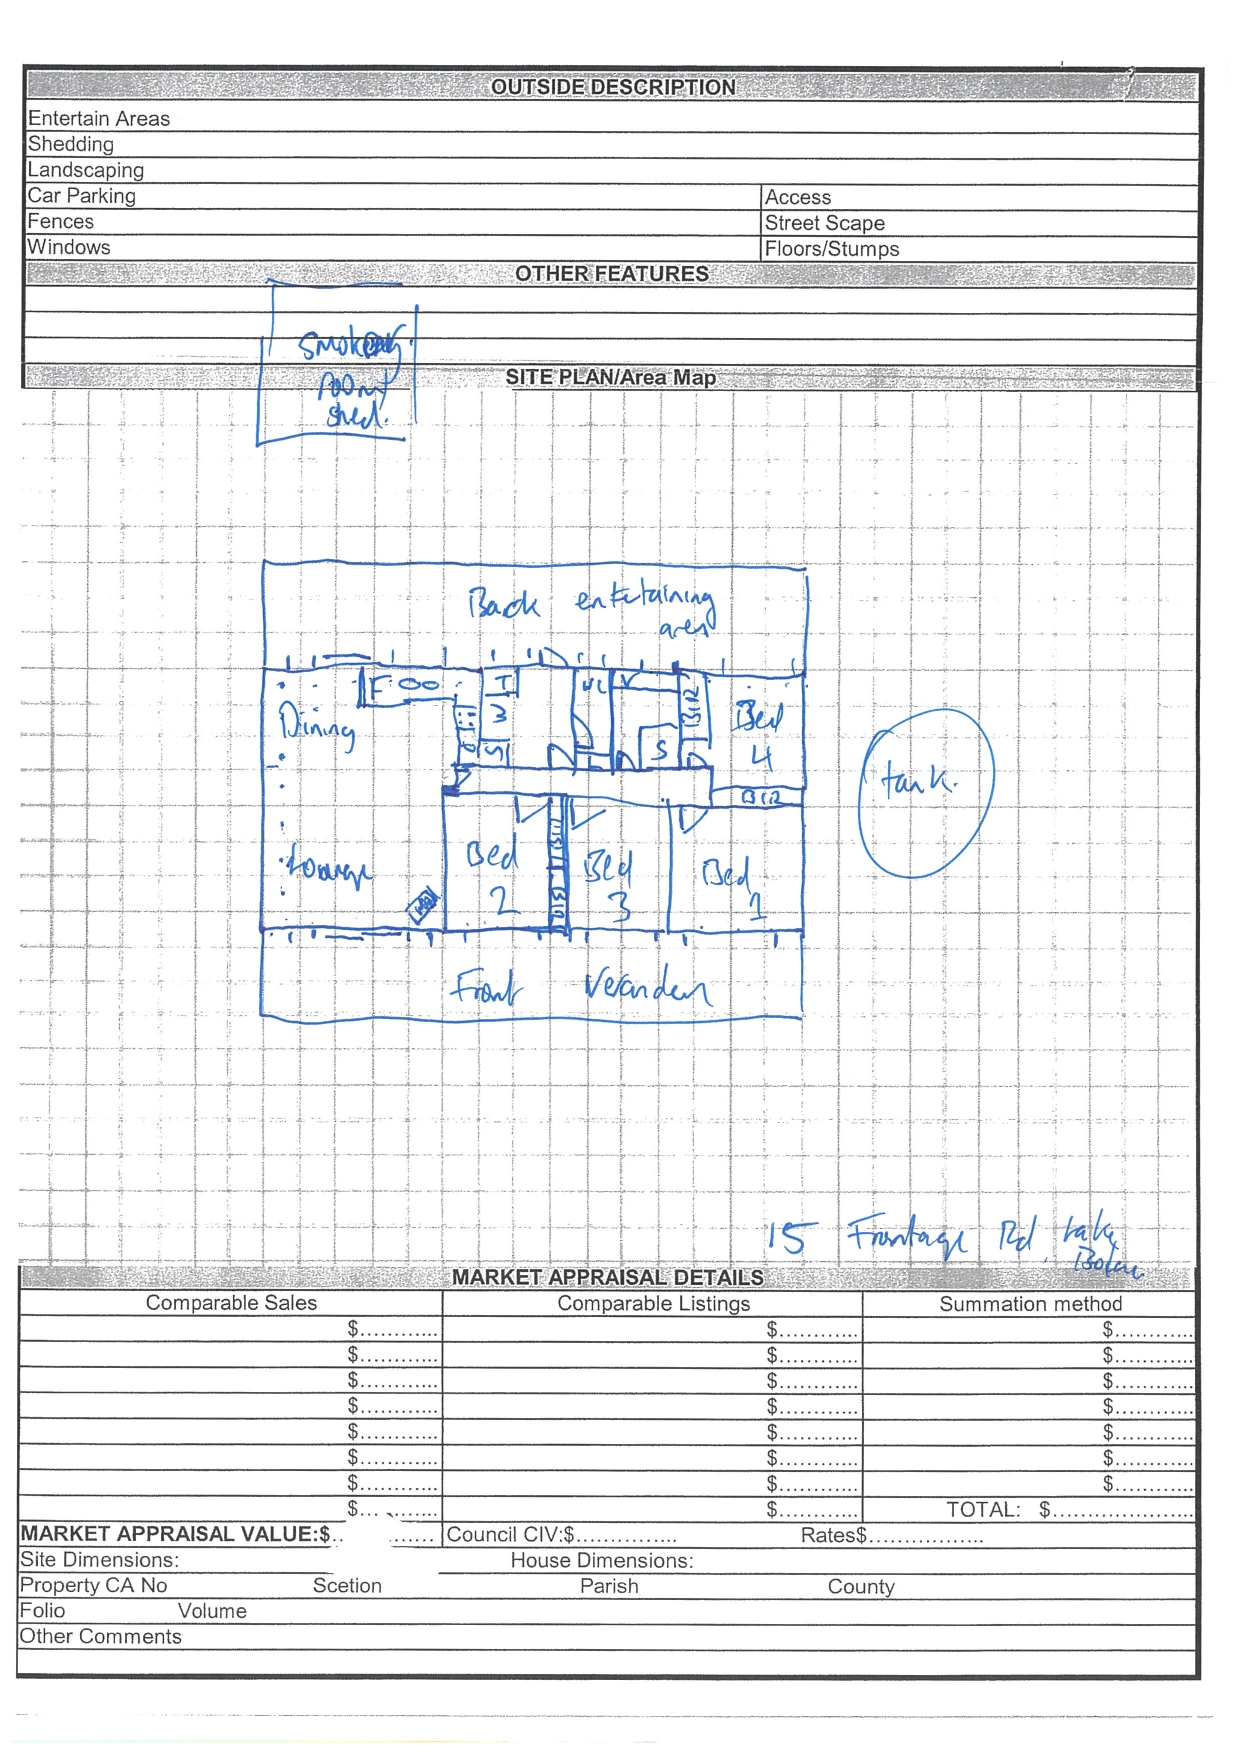 OUTSIDE DESCRIPTION
Entertain Areas
Shedding
Landscaping
Car Parking Access
Fences Street Scape
Windows Floors/Stumps
OTHER FEATURES
smoking
room
shed.
SITE PLAN/Area Map
Back entertaining
area
F
T
W
S
WC
V
BIR
S
Dining
Bed
4
P
BIR
tank.
Lounge
Bed
2
BIR
Bed
3
Bed
1
Front Verandah
15 Frontage Rd Lake
Bolac
MARKET APPRAISAL DETAILS
Comparable Sales Comparable Listings Summation method
$............ $............ $............
$............ $............ $............
$............ $............ $............
$............ $............ $............
$............ $............ $............
$............ $............ $............
$............ $............ $............
$............ $............ TOTAL: $.....................
MARKET APPRAISAL VALUE:$.. ....... Council CIV:$............... Rates$.................
Site Dimensions: House Dimensions:
Property CA No Scetion Parish County
Folio Volume
Other Comments